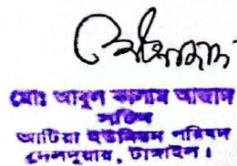 মোঃ আবুল কালাম আজাদ
সচিব
আটিয়া ইউনিয়ন পরিষদ
দেলদুয়ার, টাঙ্গাইল।